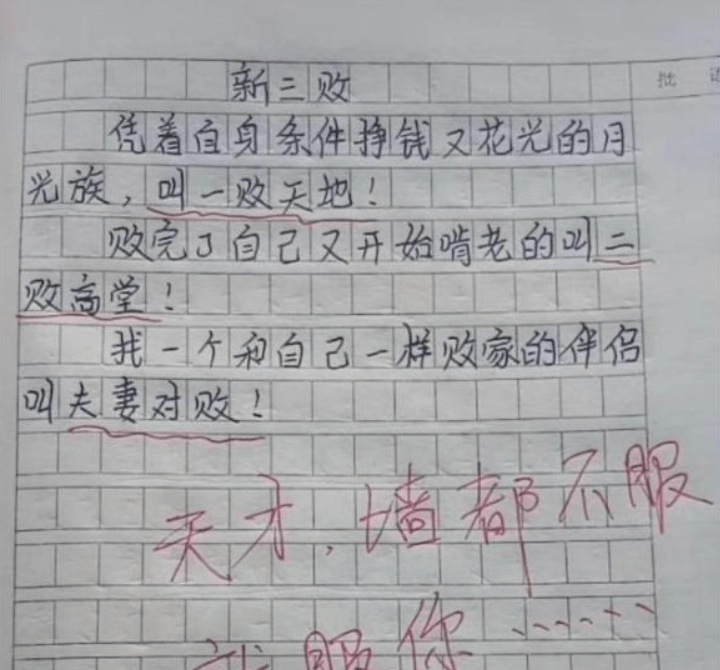 新三败
批
凭着自身条件挣钱又花光的月
光族，叫一败天地！
败完了自己又开始啃老的叫二
败高堂！
找一个和自己一样败家的伴侣
叫夫妻对败！
天才，墙都不服
就服你……